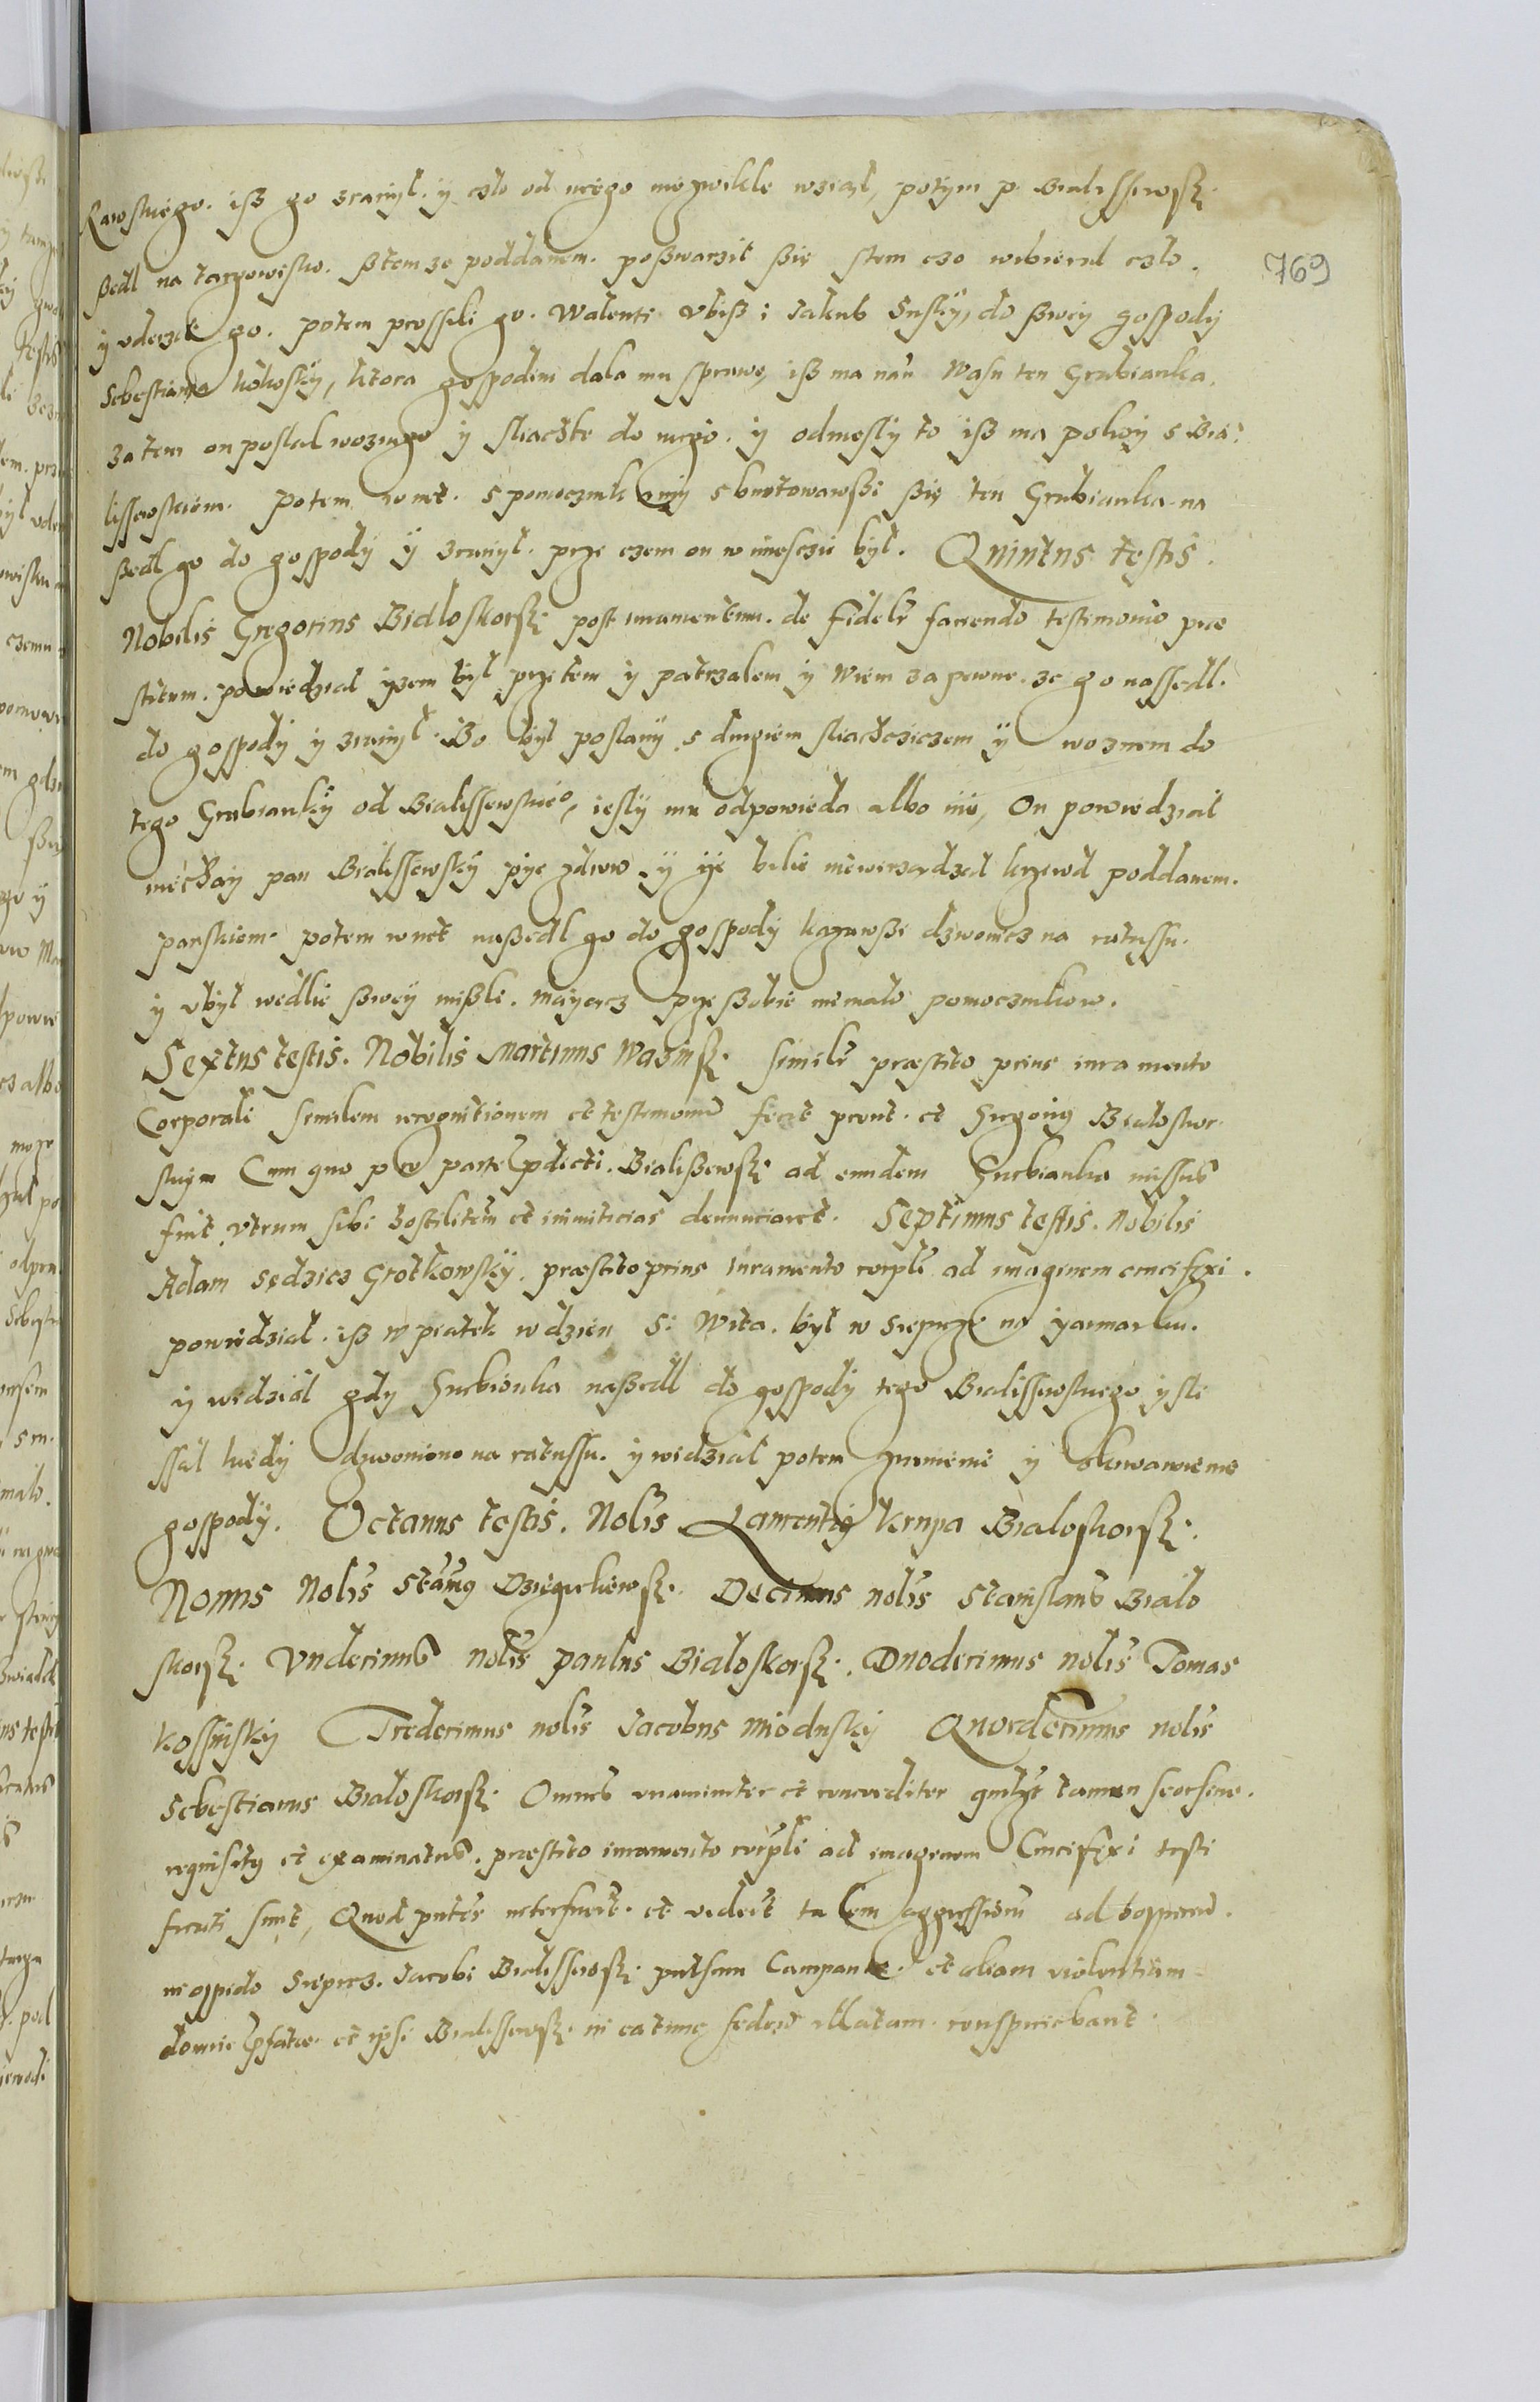 Rawskiego. iß go zranÿl. ÿ czlo od niego niezwikle wzial, potym p. Bialissewsk.
ßedl na targowisko. ßtem ze poddanem. poßwarzil ßię stem czo wibieral czlo.
ÿ uderzil go. potem prossili go. Walenti Ubiß i Jakub Suskÿ, do ßwei gospodÿ
Sebestiana kokoskÿ, ktora gospodini dala mu sprawę, iß ma nań Wasn ten Grabianka.
zatem on poslal woznego ÿ sliachte do niego. ÿ odniesly to iß ma pokoÿ s Bia-
lissewskiem. potem wnet. s pomocznikami sbuntowawßi ßię ten Grabianka na
ßedl go do gospodÿ ÿ zranÿl. prze czem on w miesczie bÿl. Quintus testis.
Nobilis Gregorius Bialoskorsk. post iuramentum. de fideli faciendo testimonio pre
stitum. powiedzial ÿzem bÿl prze tem ÿ patrzalem ÿ Wiem za pewne. ze go nassedl.
do gospodÿ ÿ zranÿl. Bo bÿl poslanÿ s drugiem sliachcziczem ÿ woznem do
tego Grabiankÿ od Bialissewskieo, ieslÿ mu odpowieda albo nie, On powiedzial
niechaÿ pan Bialissewskÿ pÿe zdrow. ÿ ÿe bilie niewirzadzal krziwd poddanem.
panskiem. potem wnet naßedl go do gospodÿ kazawße dzwonicz na ratussu.
ÿ ubÿl wedlie ßweÿ mißli. maÿacz prze ßobie niemalo pomocznikow.
Sextus testis. Nobilis Martinus Wazinsk. simili praestito prius iuramento
Corporali similem recognitionem et testimoniu fecit prout. et Gregorig Bialoskor-
skÿm Cum quo pro parte pdicti. Bialißewsk. ad eundem Grabianka missus
fuit, Utrum sibi hostilitem et inimicicias denunciaret. Septimus testis. Nobilis
Adam Sędzicz Grotkowskÿ. praestito prius Iuramento corpli ad imaginem crucifixi.
powiedzial. iß w piatek w dzien S: Wita. bÿl w Sieprcze na ÿarmarku.
ÿ widzial gdÿ Grabianka naßedl do gospodÿ tego Bialissewskiego ÿ sli
ssal kiedÿ dzwoniono na ratussu. ÿ widzial potem zranienie ÿ okrwawienie
gospodÿ. Octauus testis. Nolis Laurentig Krupa Bialoskorsk.
Nonus Nolis Stanig Dziegielewsk. Decimus nolis Stanislaus Bialo
skorsk. Undecimus nolis paulus Bialoskorsk. Duodecimus nolis Tomas
Kossinskÿ Tredecimus nolis Jacobus Mioduskÿ Quordecimus nolis
Sebestianus Bialoskorsk. Omnes unanimiter et concorditer quilzt tamen seorsim.
requisitg et examinatus. praestito iuramento corpli ad imaginem Crucifixi testi
ficati sunt, Quod pntes interfuert. et vidert talem aggressioem ad hospiciu.
in oppido Sieprcz. Jacobi Bialissewsk. pulsum Campanae. et aliam violentiam
domui pfatae. et ipsi Bialissewsk. in ea tunc sedeti illatam. conspiciebant.
769